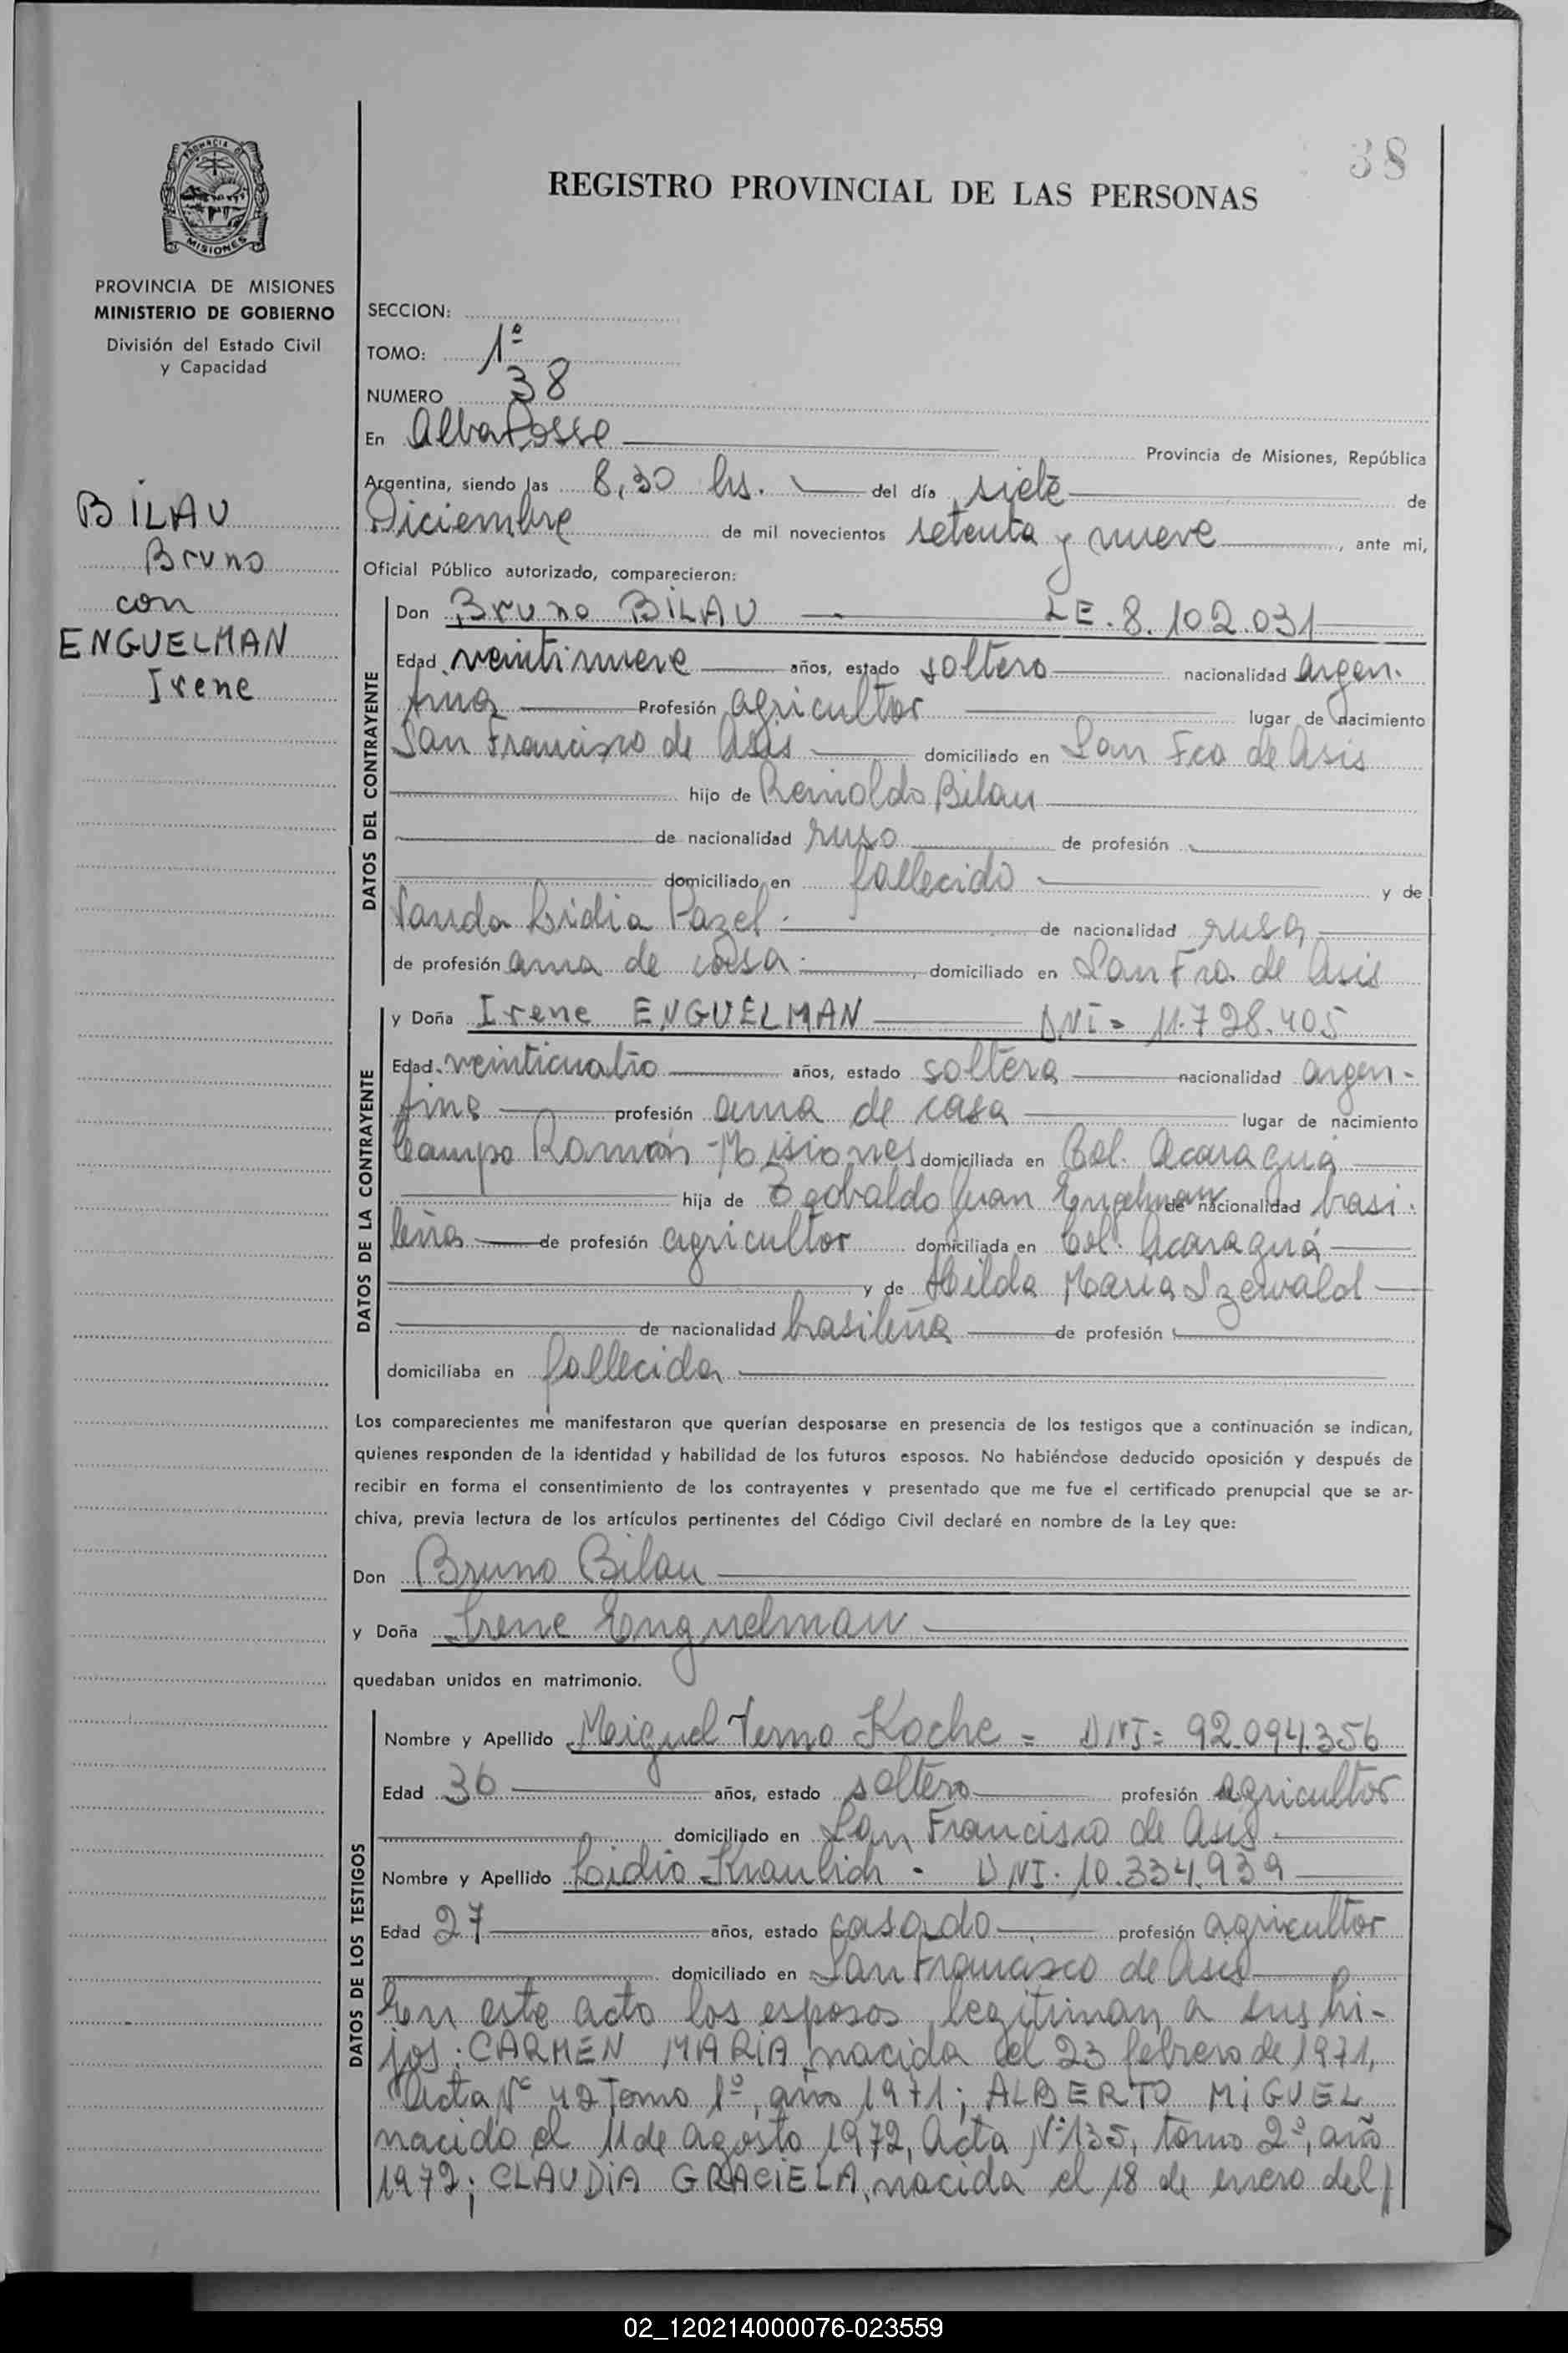 38
REGISTRO PROVINCIAL DE LAS PERSONAS
PROVINCIA DE
MISIONES
PROVINCIA DE MISIONES
MINISTERIO DE GOBIERNO
División del Estado Civil
y Capacidad
BILAU
Bruno
con
ENGUELMAN
Irene
SECCION:
TOMO: 1º
NUMERO 38
En Alba Posse Provincia de Misiones, República
Argentina, siendo las 8,30 hs. del día siete de
Diciembre de mil novecientos setenta y nueve, ante mi,
Oficial Público autorizado, comparecieron:
DATOS DEL CONTRAYENTE
Don Bruno BILAU LE. 8.102.031
Edad veintinueve años, estado soltero nacionalidad argen-
tina Profesión agricultor lugar de nacimiento
San Francisco de Asis domiciliado en San Fco de Asis
hijo de Reinoldo Bilau
de nacionalidad ruso de profesión
domiciliado en fallecido y de
Lidia Pazel. de nacionalidad rusa
de profesión ama de casa. domiciliado en San Fco. de Asis
DATOS DE LA CONTRAYENTE
y Doña Irene ENGUELMAN DNI = 11.728.405
Edad veinticuatro años, estado soltera nacionalidad argen-
tina profesión ama de casa lugar de nacimiento
Campo Ramón - Misiones domiciliada en Col. Acaraguá
hija de Juan Engelman de nacionalidad brasi-
leña de profesión agricultor domiciliada en Col. Acaraguá
y de Hilda Maria Szewald
de nacionalidad brasileña de profesión
domiciliaba en fallecida
Los comparecientes me manifestaron que querían desposarse en presencia de los testigos que a continuación se indican,
quienes responden de la identidad y habilidad de los futuros esposos. No habiéndose deducido oposición y después de
recibir en forma el consentimiento de los contrayentes y presentado que me fue el certificado prenupcial que se ar-
chiva, previa lectura de los artículos pertinentes del Código Civil declaré en nombre de la Ley que:
Don Bruno Bilau
y Doña Irene Enguelman
quedaban unidos en matrimonio.
DATOS DE LOS TESTIGOS
Nombre y Apellido Miguel Verno Koche = DNI = 92.094.356
Edad 36 años, estado soltero profesión agricultor
domiciliado en San Francisco de Asis.
Nombre y Apellido Lidio Kraulich - DNI. 10.334.939
Edad 27 años, estado casado profesión agricultor
domiciliado en San Francisco de Asis
En este acto los esposos legitiman a sus hi-
jos: CARMEN MARIA, nacida el 23 febrero de 1971,
Acta Nº 42 Tomo 1º, año 1971; ALBERTO MIGUEL
nacido el 11 de agosto 1972, Acta Nº 135, tomo 2º, año
1972; CLAUDIA GRACIELA, nacida el 18 de enero del
02_120214000076-023559